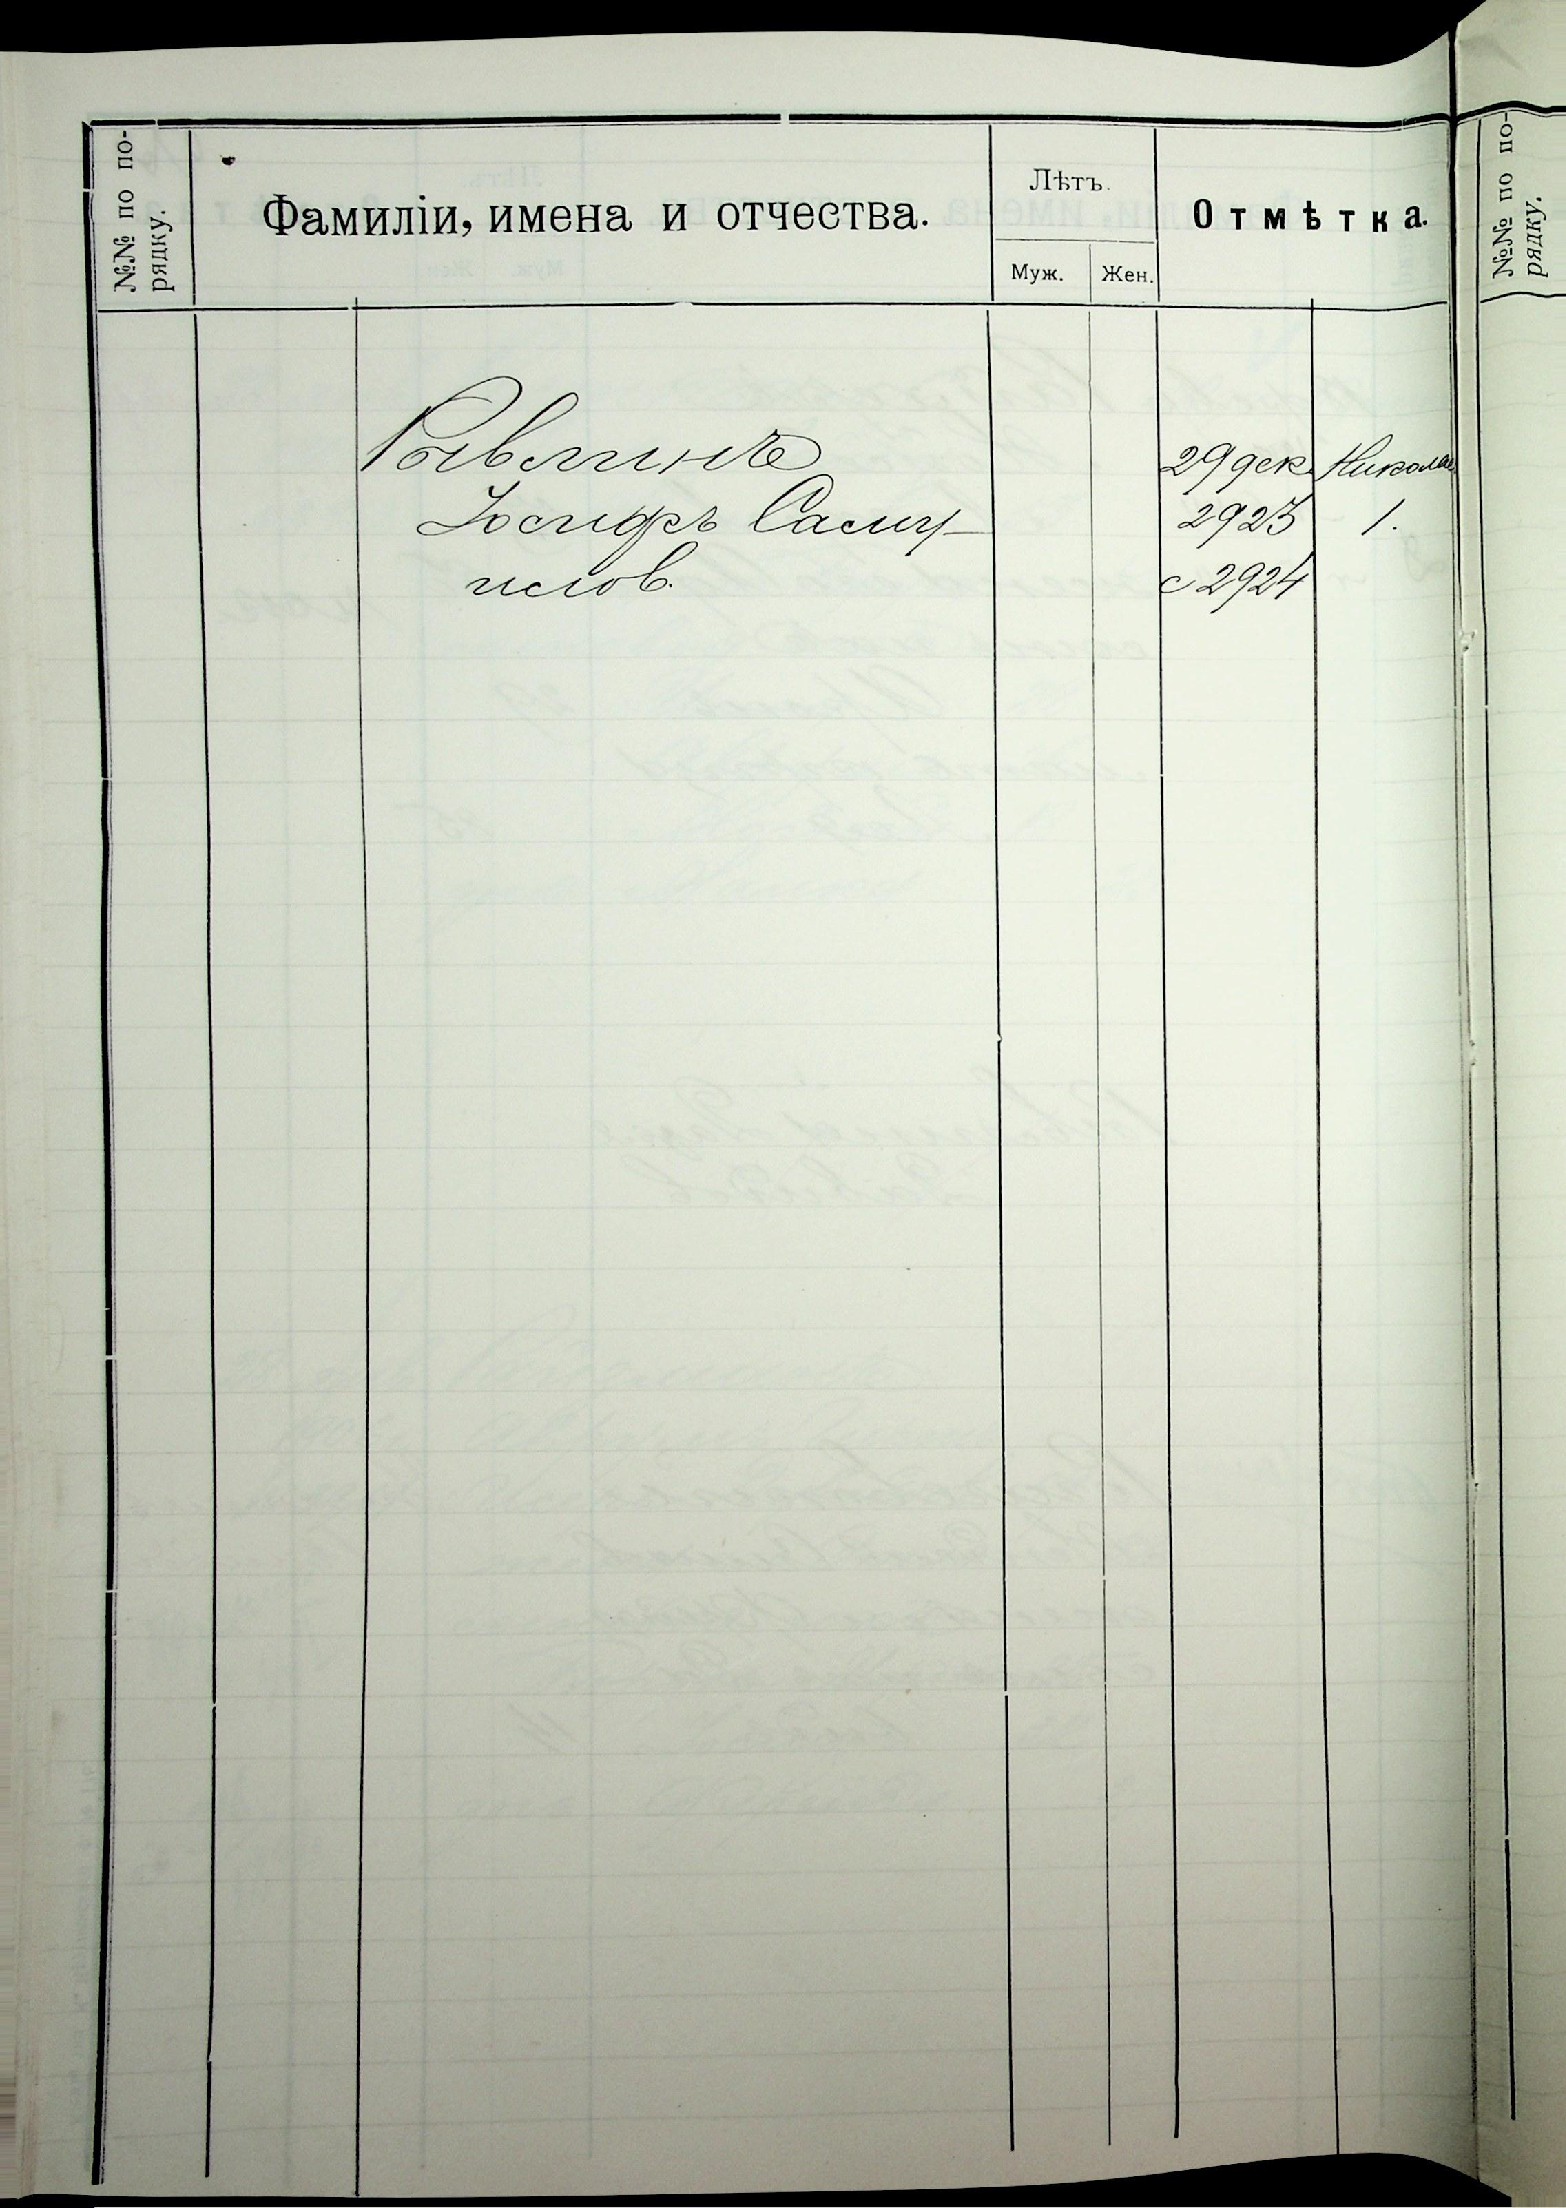 №№ по по-
рядку.
Фамиліи, имена и отчества.
Лѣтъ.
Муж.
Жен.
Отмѣтка.
Рывлинъ
Іосифъ Саму-
илов.
29 дек.
2923
с 2924
Николаев.
1.
№№ по по-
рядку.